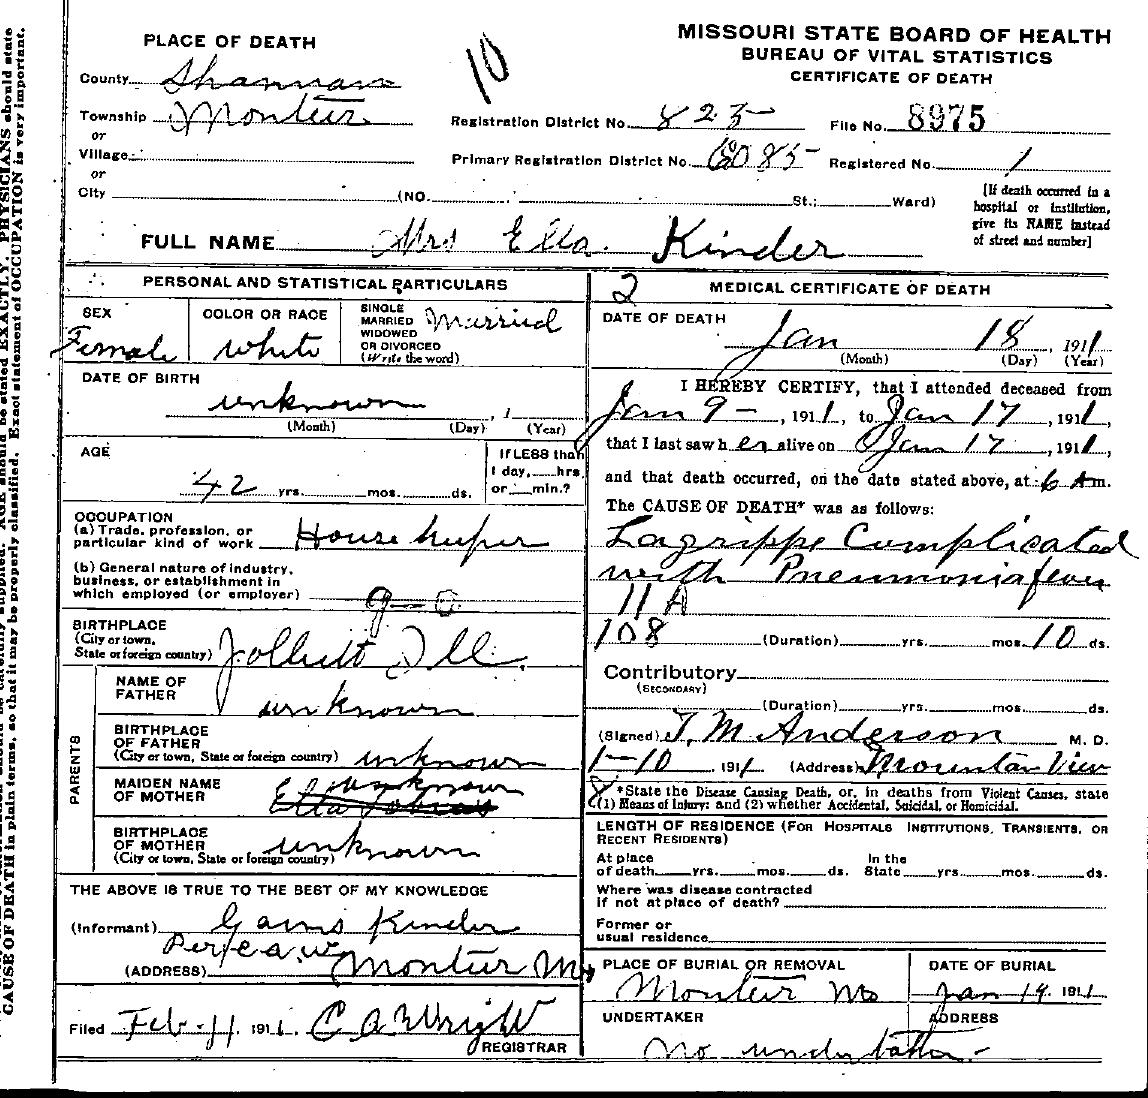 PLACE OF DEATH
County Shannon
Township Montier
or
Village
or
City (NO. St.; Ward)
10
MISSOURI STATE BOARD OF HEALTH
BUREAU OF VITAL STATISTICS
CERTIFICATE OF DEATH
Registration District No. 823 File No. 8975
Primary Registration District No. 6085 Registered No. 1
[If death occurred in a
hospital or institution,
give its NAME instead
of street and number]
FULL NAME Mrs Ella Kinder
PERSONAL AND STATISTICAL PARTICULARS
SEX
Female
COLOR OR RACE
White
SINGLE
MARRIED
WIDOWED
OR DIVORCED
(Write the word)
Married
DATE OF BIRTH
unknown , 1
(Month) (Day) (Year)
AGE
42 yrs. mos. ds.
If LESS than
1 day, hrs.
or min.?
OCCUPATION
(a) Trade, profession, or
particular kind of work House keeper
(b) General nature of industry,
business, or establishment in
which employed (or employer)
9-0
BIRTHPLACE
(City or town,
State or foreign country) Ill.
PARENTS
NAME OF
FATHER
unknown
BIRTHPLACE
OF FATHER
(City or town, State or foreign country) unknown
MAIDEN NAME
OF MOTHER
unknown
BIRTHPLACE
OF MOTHER
(City or town, State or foreign country) unknown
THE ABOVE IS TRUE TO THE BEST OF MY KNOWLEDGE
(Informant) Kinder
Per
(ADDRESS) Montier Mo
Filed Feb-11 1911. C A Wright
REGISTRAR
2
MEDICAL CERTIFICATE OF DEATH
DATE OF DEATH
Jan 18, 1911
(Month) (Day) (Year)
I HEREBY CERTIFY, that I attended deceased from
Jan 9-, 1911, to Jan 17, 1911,
that I last saw her alive on Jan 17, 1911,
and that death occurred, on the date stated above, at 6 Am.
The CAUSE OF DEATH* was as follows:
Lagrippe Complicated
with Pneumonia fever
11A
108 (Duration) yrs. mos. 10 ds.
Contributory
(SECONDARY)
(Duration) yrs. mos. ds.
(Signed) T. M Anderson M. D.
1-10, 1911 (Address) Mountain View
*State the Disease Causing Death, or, in deaths from Violent Causes, state
(1) Means of Injury: and (2) whether Accidental, Suicidal, or Homicidal.
LENGTH OF RESIDENCE (FOR HOSPITALS INSTITUTIONS, TRANSIENTS, OR
RECENT RESIDENTS)
At place In the
of death yrs. mos. ds. State yrs. mos. ds.
Where was disease contracted
if not at place of death?
Former or
usual residence
PLACE OF BURIAL OR REMOVAL
Montier Mo
DATE OF BURIAL
Jan 19. 1911
UNDERTAKER
ADDRESS
No undertaker-
CAUSE OF DEATH in plain terms, so that it may be properly classified. Exact statement of OCCUPATION is very important.
supplied. AGE should be stated EXACTLY. PHYSICIANS should state